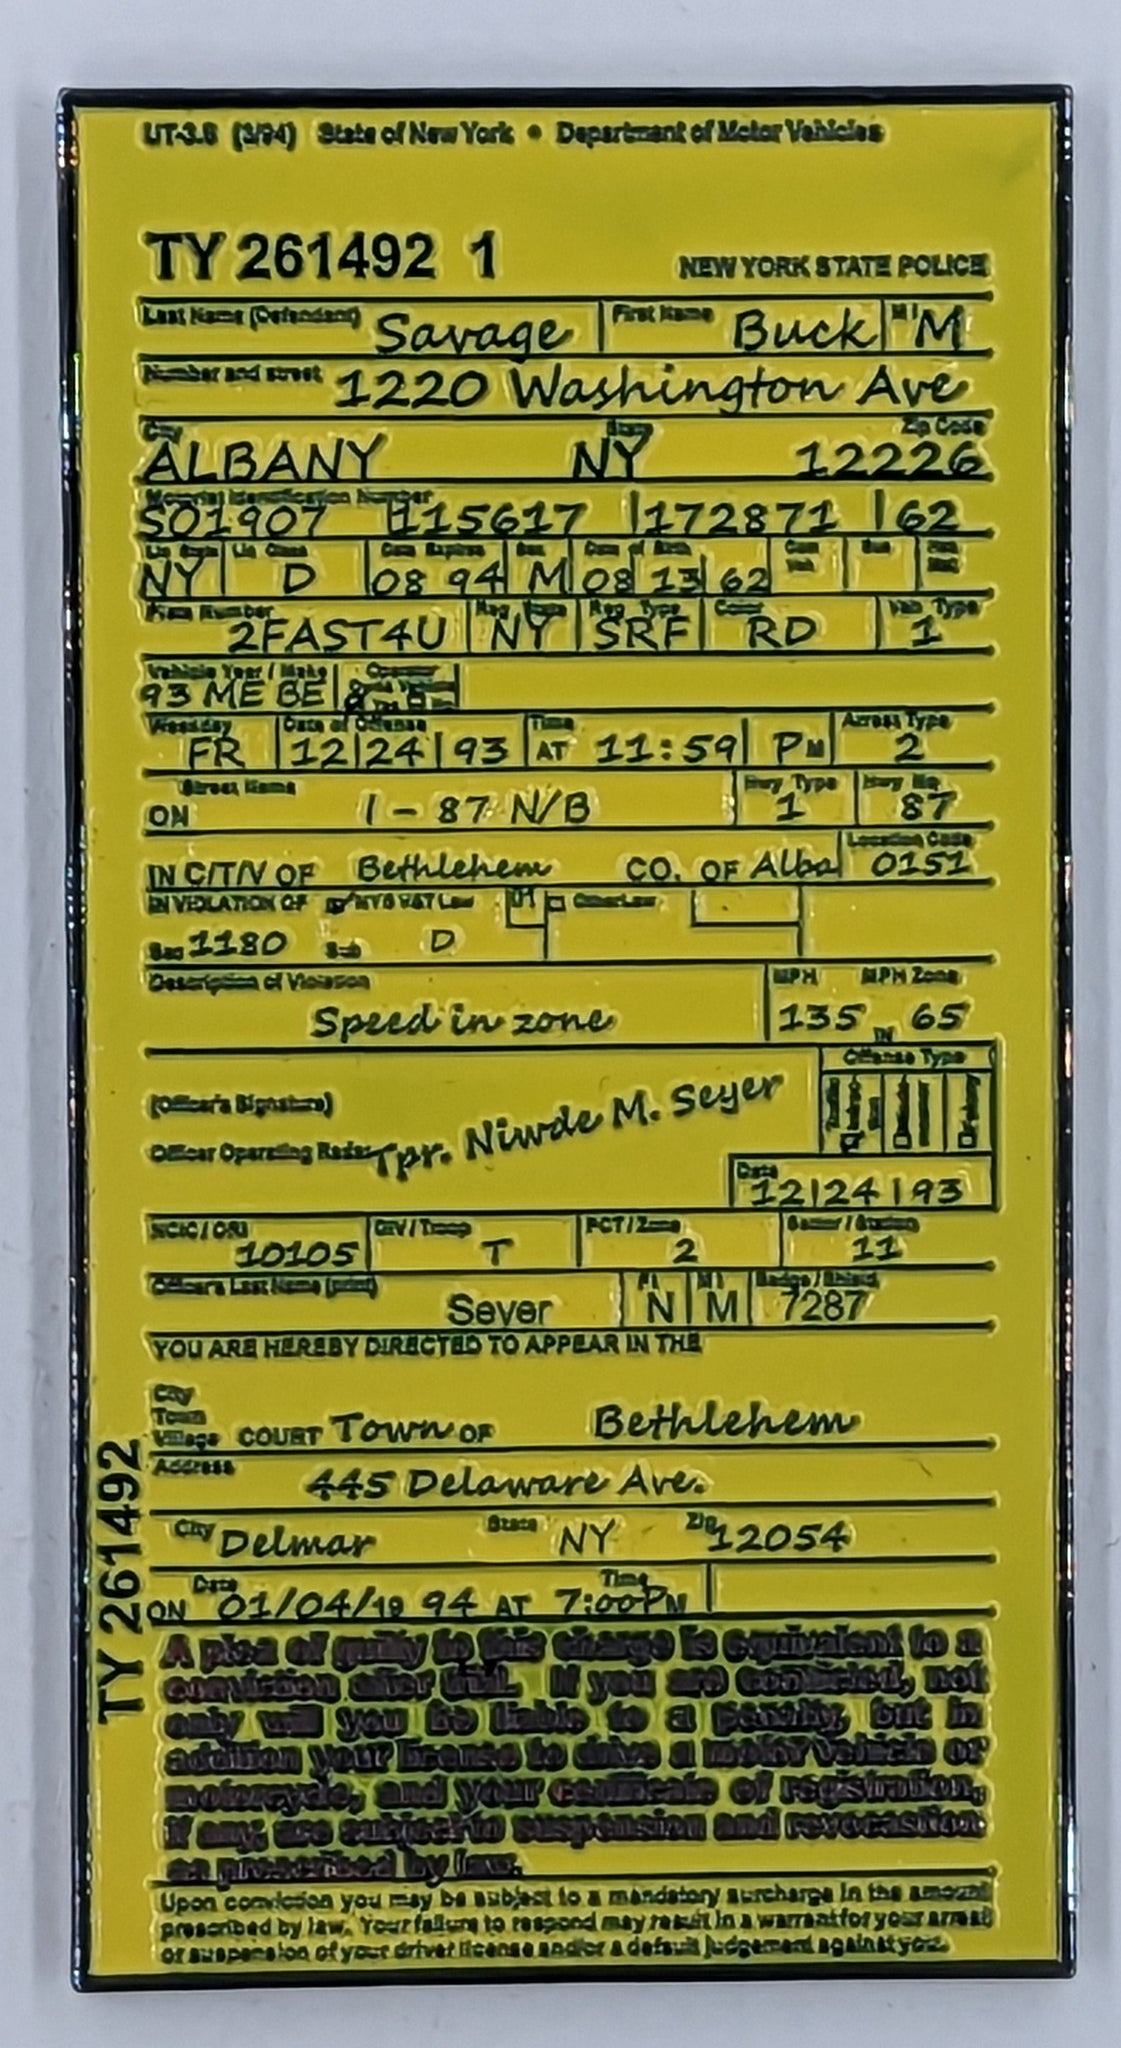 UT-3.8 (3/94) State of New York • Department of Motor Vehicles
TY 261492 1 NEW YORK STATE POLICE
Last Name (Defendant) Savage First Name Buck MI M
Number and street 1220 Washington Ave
City State Zip Code
ALBANY NY 12226
Motorist Identification Number
S01907 115617 172871 62
Lic State Lic Class Date Expires Sex Date of Birth
NY D 08 94 M 08 13 62
Plate Number Reg State Reg Type Color Veh Type
2FAST4U NY SRF RD 1
Vehicle Year / Make
93 ME BE
Weekday Date of Offense Time Arrest Type
FR 12 24 93 AT 11:59 PM 2
Street Name Hwy Type Hwy No
ON I - 87 N/B 1 87
Location Code
IN C/T/V OF Bethlehem CO. OF Alba 0151
IN VIOLATION OF NYS V&T Law 01 Other Law
Sec 1180 Sub D
Description of Violation MPH MPH Zone
Speed in zone 135 IN 65
Offense Type
(Officer's Signature)
Officer Operating Radar Tpr. Niwde M. Seyer
Date
12 24 93
NCIC / ORI DIV / Troop PCT / Zone Sector / Station
10105 T 2 11
Officer's Last Name (print) FI MI Badge / Shield
Seyer N M 7287
YOU ARE HEREBY DIRECTED TO APPEAR IN THE
City
Town
Village COURT Town OF Bethlehem
Address
445 Delaware Ave.
City Delmar State NY Zip 12054
Date Time
ON 01/04/19 94 AT 7:00PM
A plea of guilty to this charge is equivalent to a
conviction after trial. If you are convicted, not
only will you be liable to a penalty, but in
addition your license to drive a motor vehicle or
motorcycle, and your certificate of registration,
if any, are subject to suspension and revocation
as prescribed by law.
Upon conviction you may be subject to a mandatory surcharge in the amount
prescribed by law. Your failure to respond may result in a warrant for your arrest
or suspension of your driver license and/or a default judgement against you.
TY 261492